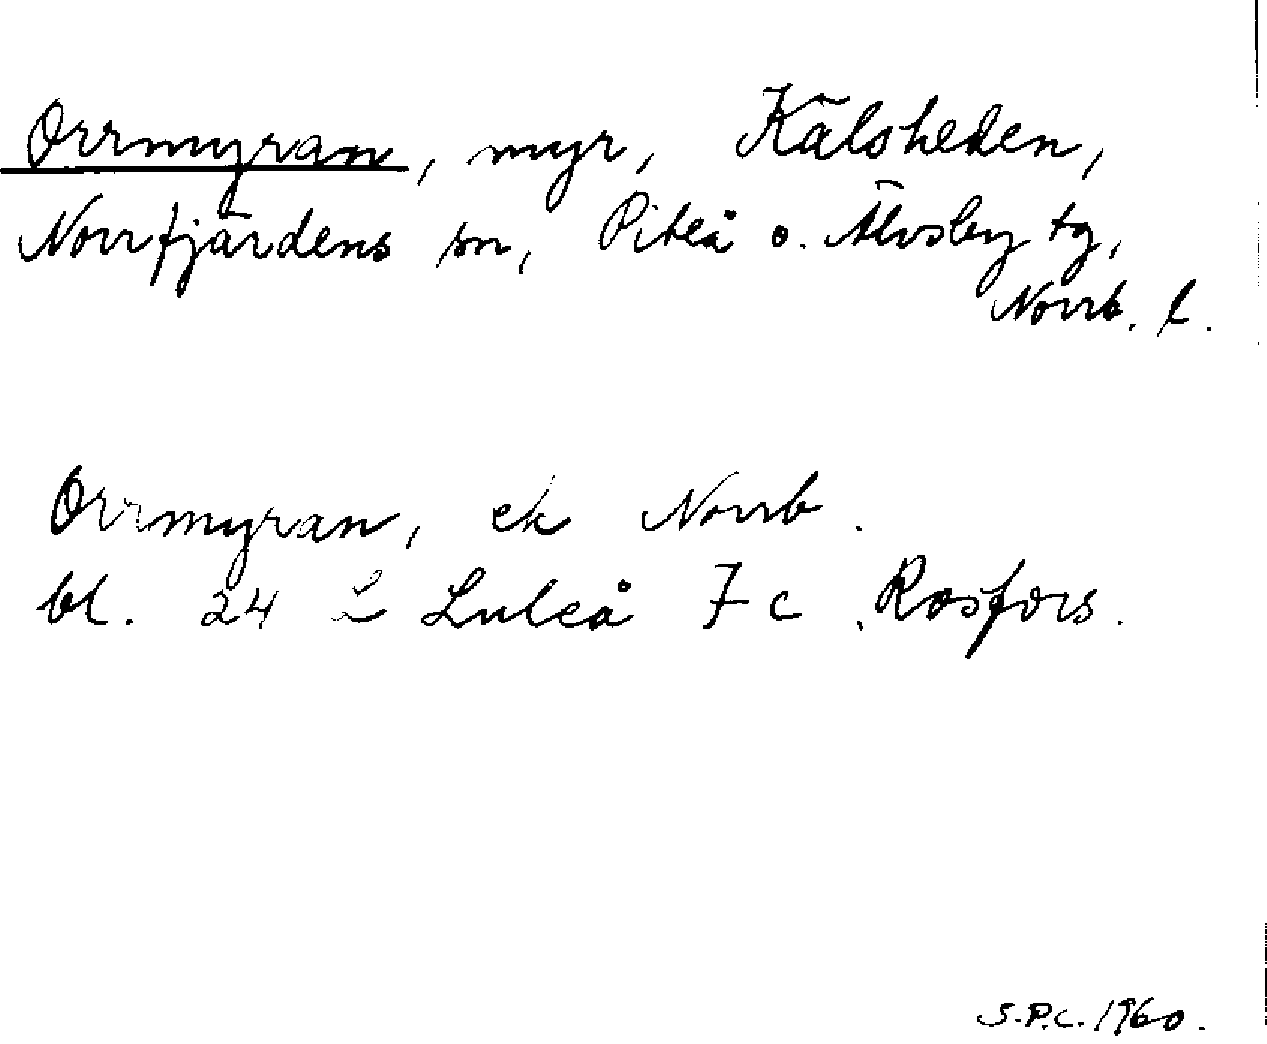 Orrmyran, myr, Kälsheden,
Norrfjärdens sn, Piteå o. Älvsby tg,
Norrb. l.
Orrmyran, ek Norrb.
bl. 24 L Luleå 7 c Rosfors.
S.P.C. 1960.